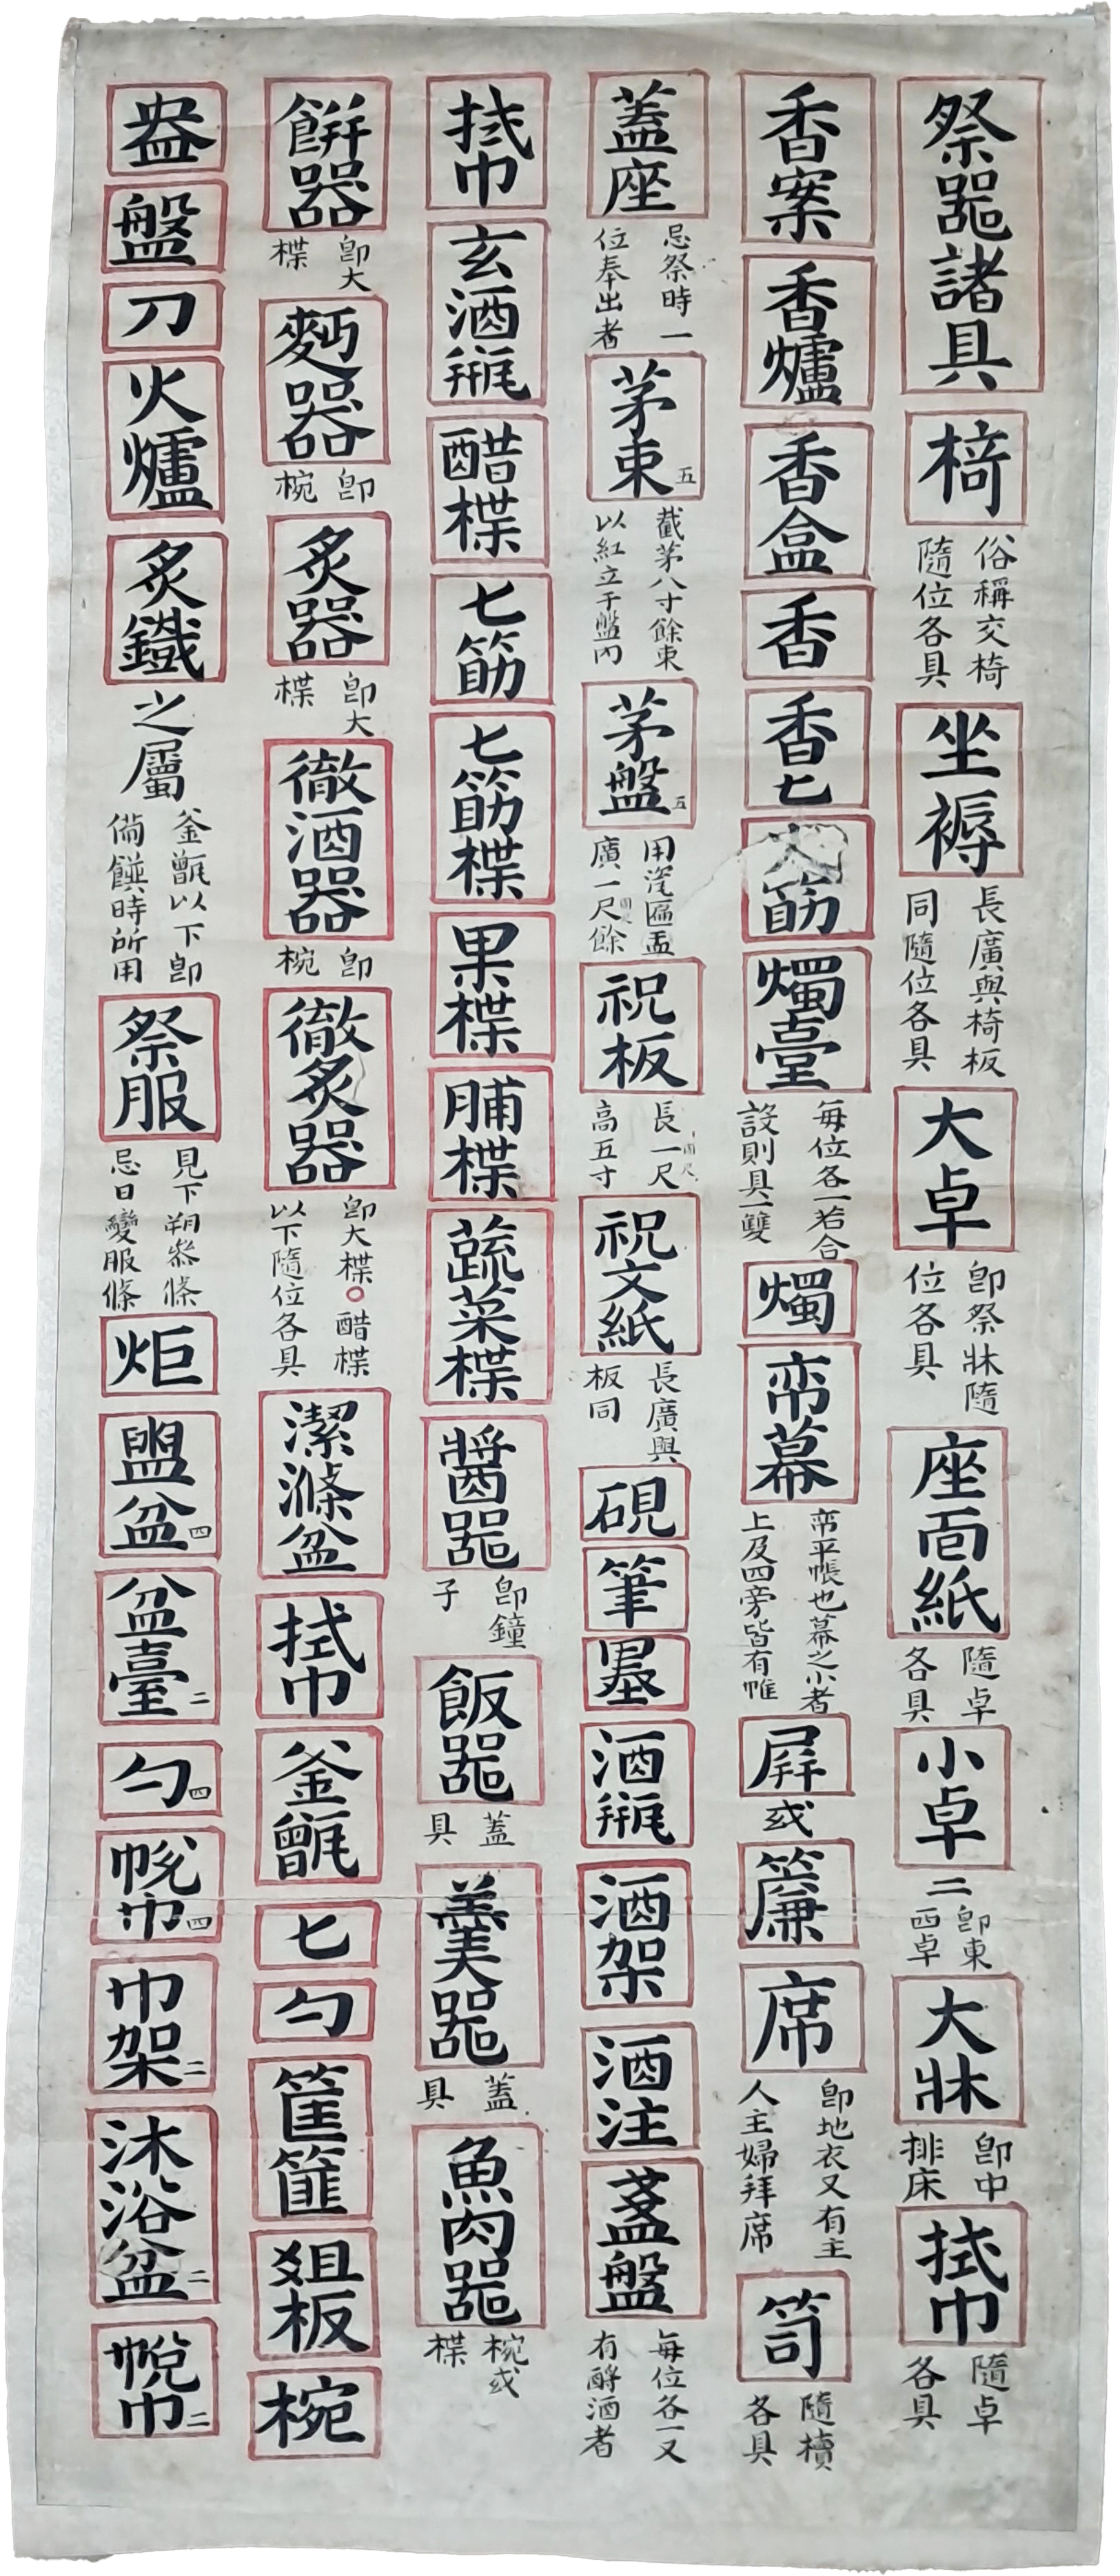 祭器諸具 椅 俗稱交椅隨位各具 坐褥 長廣與椅板同隨位各具 大卓 卽祭牀隨位各具 座面紙 隨卓各具 小卓 二 卽東西卓 大牀 卽中排床 拭巾 隨卓各具
香案 香爐 香盒 香 香匕 火筯 燭臺 每位各一若合設則具一雙 燭 帟幕 帟平帳也幕之小者上及四旁皆有帷 屛 或 簾 席 卽地衣又有主人主婦拜席 笥 隨櫝各具
蓋座 忌祭時一位奉出者 茅束 五 截茅八寸餘束以紅立于盤內 茅盤 五 用瓷匾盂廣一尺餘 祝板 長一尺高五寸 祝文紙 長廣與板同 硯 筆 墨 酒甁 酒架 酒注 盞盤 每位各一又有酹酒者
拭巾 玄酒甁 醋楪 匕筯 匕筯楪 果楪 脯楪 蔬菜楪 醬器 卽鐘子 飯器 蓋具 羹器 蓋具 魚肉器 椀或楪
餠器 卽大楪 麪器 卽椀 炙器 卽大楪 徹酒器 卽椀 徹炙器 卽大楪○醋楪以下隨位各具 潔滌盆 拭巾 釜甑 匕 勺 筐篚 俎板 椀
盎 盤 刀 火爐 炙鐵 之屬 釜甑以下卽備饌時所用 祭服 見下朔參條忌日變服條 炬 盥盆 四 盆臺 二 勺 四 帨巾 四 巾架 二 沐浴盆 二 帨巾 二